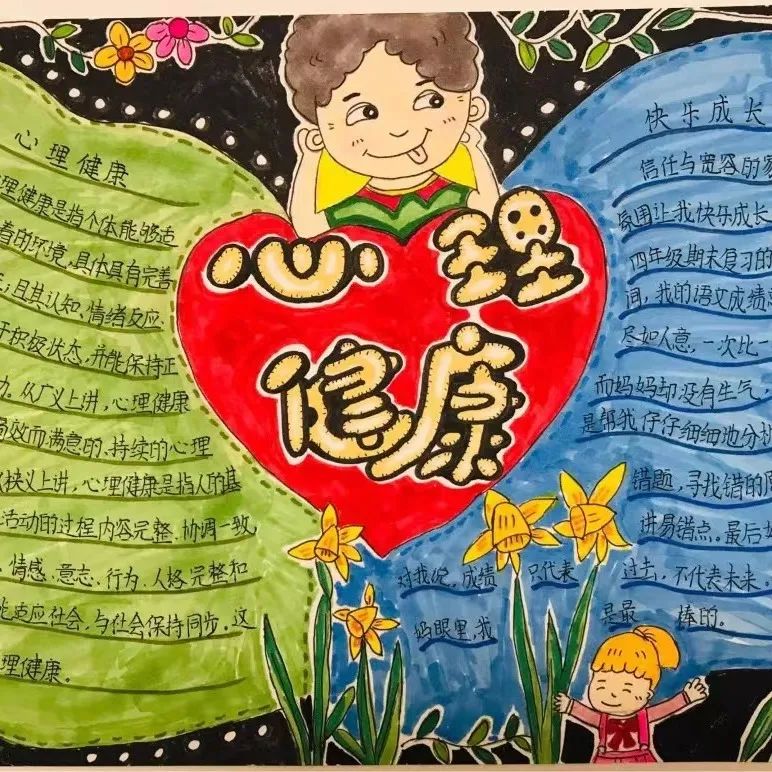 心理
健康
心理健康
理健康是指个体能够适
的环境,具体具有完善
;且其认知、情绪反应
于积极状态,并能保持正
力。从广义上讲,心理健康
高效而满意的、持续的心理
狭义上讲,心理健康是指人的基
活动的过程内容完整、协调一致,
、情感、意志、行为、人格完整和
适应社会,与社会保持同步。这
理健康。
快乐成长
信任与宽容的家
氛围让我快乐成长
四年级期末复习的
间,我的语文成绩
尽如人意,一次比一
而妈妈却没有生气,
是帮我仔仔细细地分析
错题,寻找错的原
讲易错点。最后
对我说,成绩 只代表 过去,不代表未来。
妈眼里,我 是最 棒的。